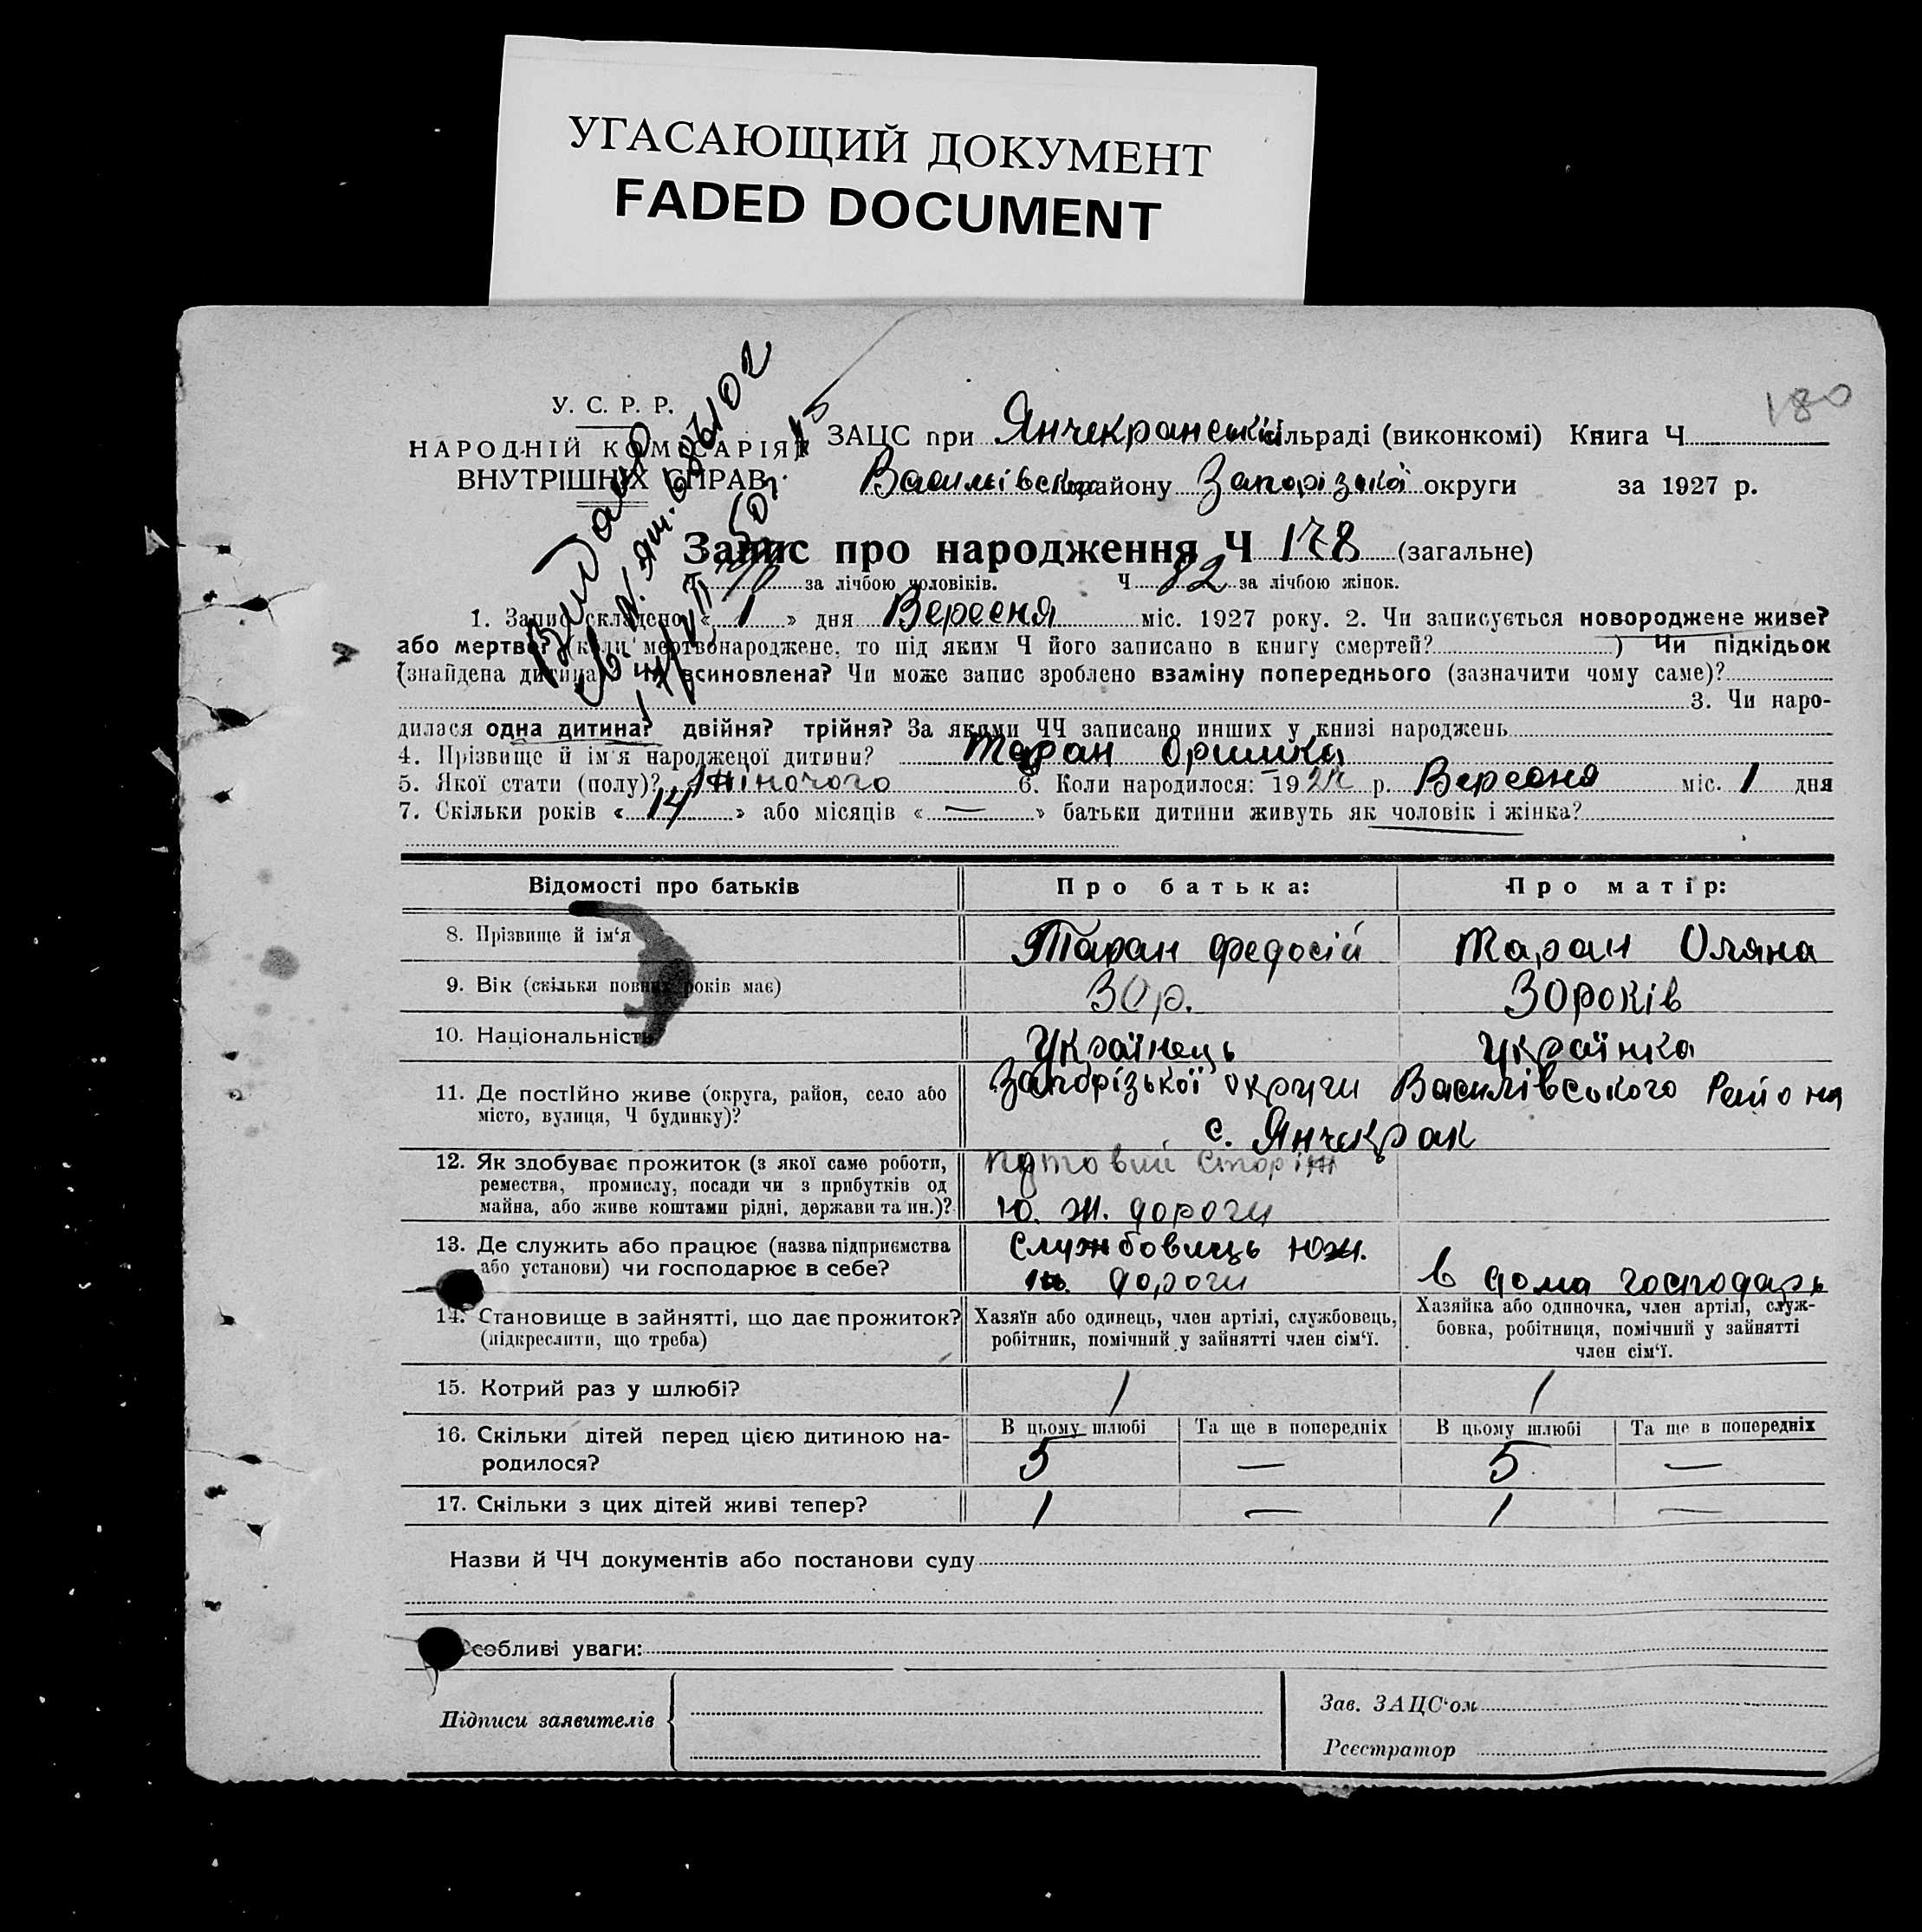 УГАСАЮЩИЙ ДОКУМЕНТ
FADED DOCUMENT
180
У. С. Р. Р.
НАРОДНІЙ КОМІСАРІЯТ
ВНУТРІШНІХ СПРАВ
ЗАЦС при Янчекранській сільраді (виконкомі) Книга Ч
Василівськ району Запорізької округи за 1927 р.
Запис про народження Ч 178 (загальне)
за лічбою чоловіків. Ч 82 за лічбою жінок.
1. Запис складено « 1 » дня Вересня міс. 1927 року. 2. Чи записується новороджене живе?
або мертве? (коли мертвонароджене, то під яким Ч його записано в книгу смертей? ) Чи підкідьок
(знайдена дитина) чи всиновлена? Чи може запис зроблено взаміну попереднього (зазначити чому саме)?
3. Чи наро-
дилася одна дитина? двійня? трійня? За якими ЧЧ записано инших у книзі народжень
4. Прізвище й ім'я народженої дитини? Таран Оришка
5. Якої стати (полу)? жіночого 6. Коли народилося: 192 р. Вересня міс. 1 дня
7. Скільки років « 14 » або місяців « — » батьки дитини живуть як чоловік і жінка?
Відомості про батьків Про батька: Про матір:
8. Прізвище й ім'я Таран Федосій Таран Оляна
9. Вік (скільки повних років має) 30р. 30років
10. Національність Українець Українка
11. Де постійно живе (округа, район, село або Запорізької округи Василівського Району
місто, вулиця, Ч будинку)? с. Янчекрак
12. Як здобуває прожиток (з якої саме роботи, путовий сторіж
ремества, промислу, посади чи з прибутків од
майна, або живе коштами рідні, держави та ин.)? Ю. Ж. дороги
13. Де служить або працює (назва підприємства Службовиць Юж.
або установи) чи господарює в себе? ж. дороги в дома господарь
14. Становище в зайнятті, що дає прожиток? Хазяїн або одинець, член артілі, службовець, Хазяйка або одиночка, член артілі, служ-
(підкреслити, що треба) робітник, помічний у зайнятті член сім'ї. бовка, робітниця, помічний у зайнятті
член сім'ї.
15. Котрий раз у шлюбі? 1 1
16. Скільки дітей перед цією дитиною на- В цьому шлюбі Та ще в попередніх В цьому шлюбі Та ще в попередніх
родилося? 5 — 5 —
17. Скільки з цих дітей живі тепер? 1 — 1 —
Назви й ЧЧ документів або постанови суду
Особливі уваги:
Підписи заявителів
Зав. ЗАЦС'ом
Реєстратор